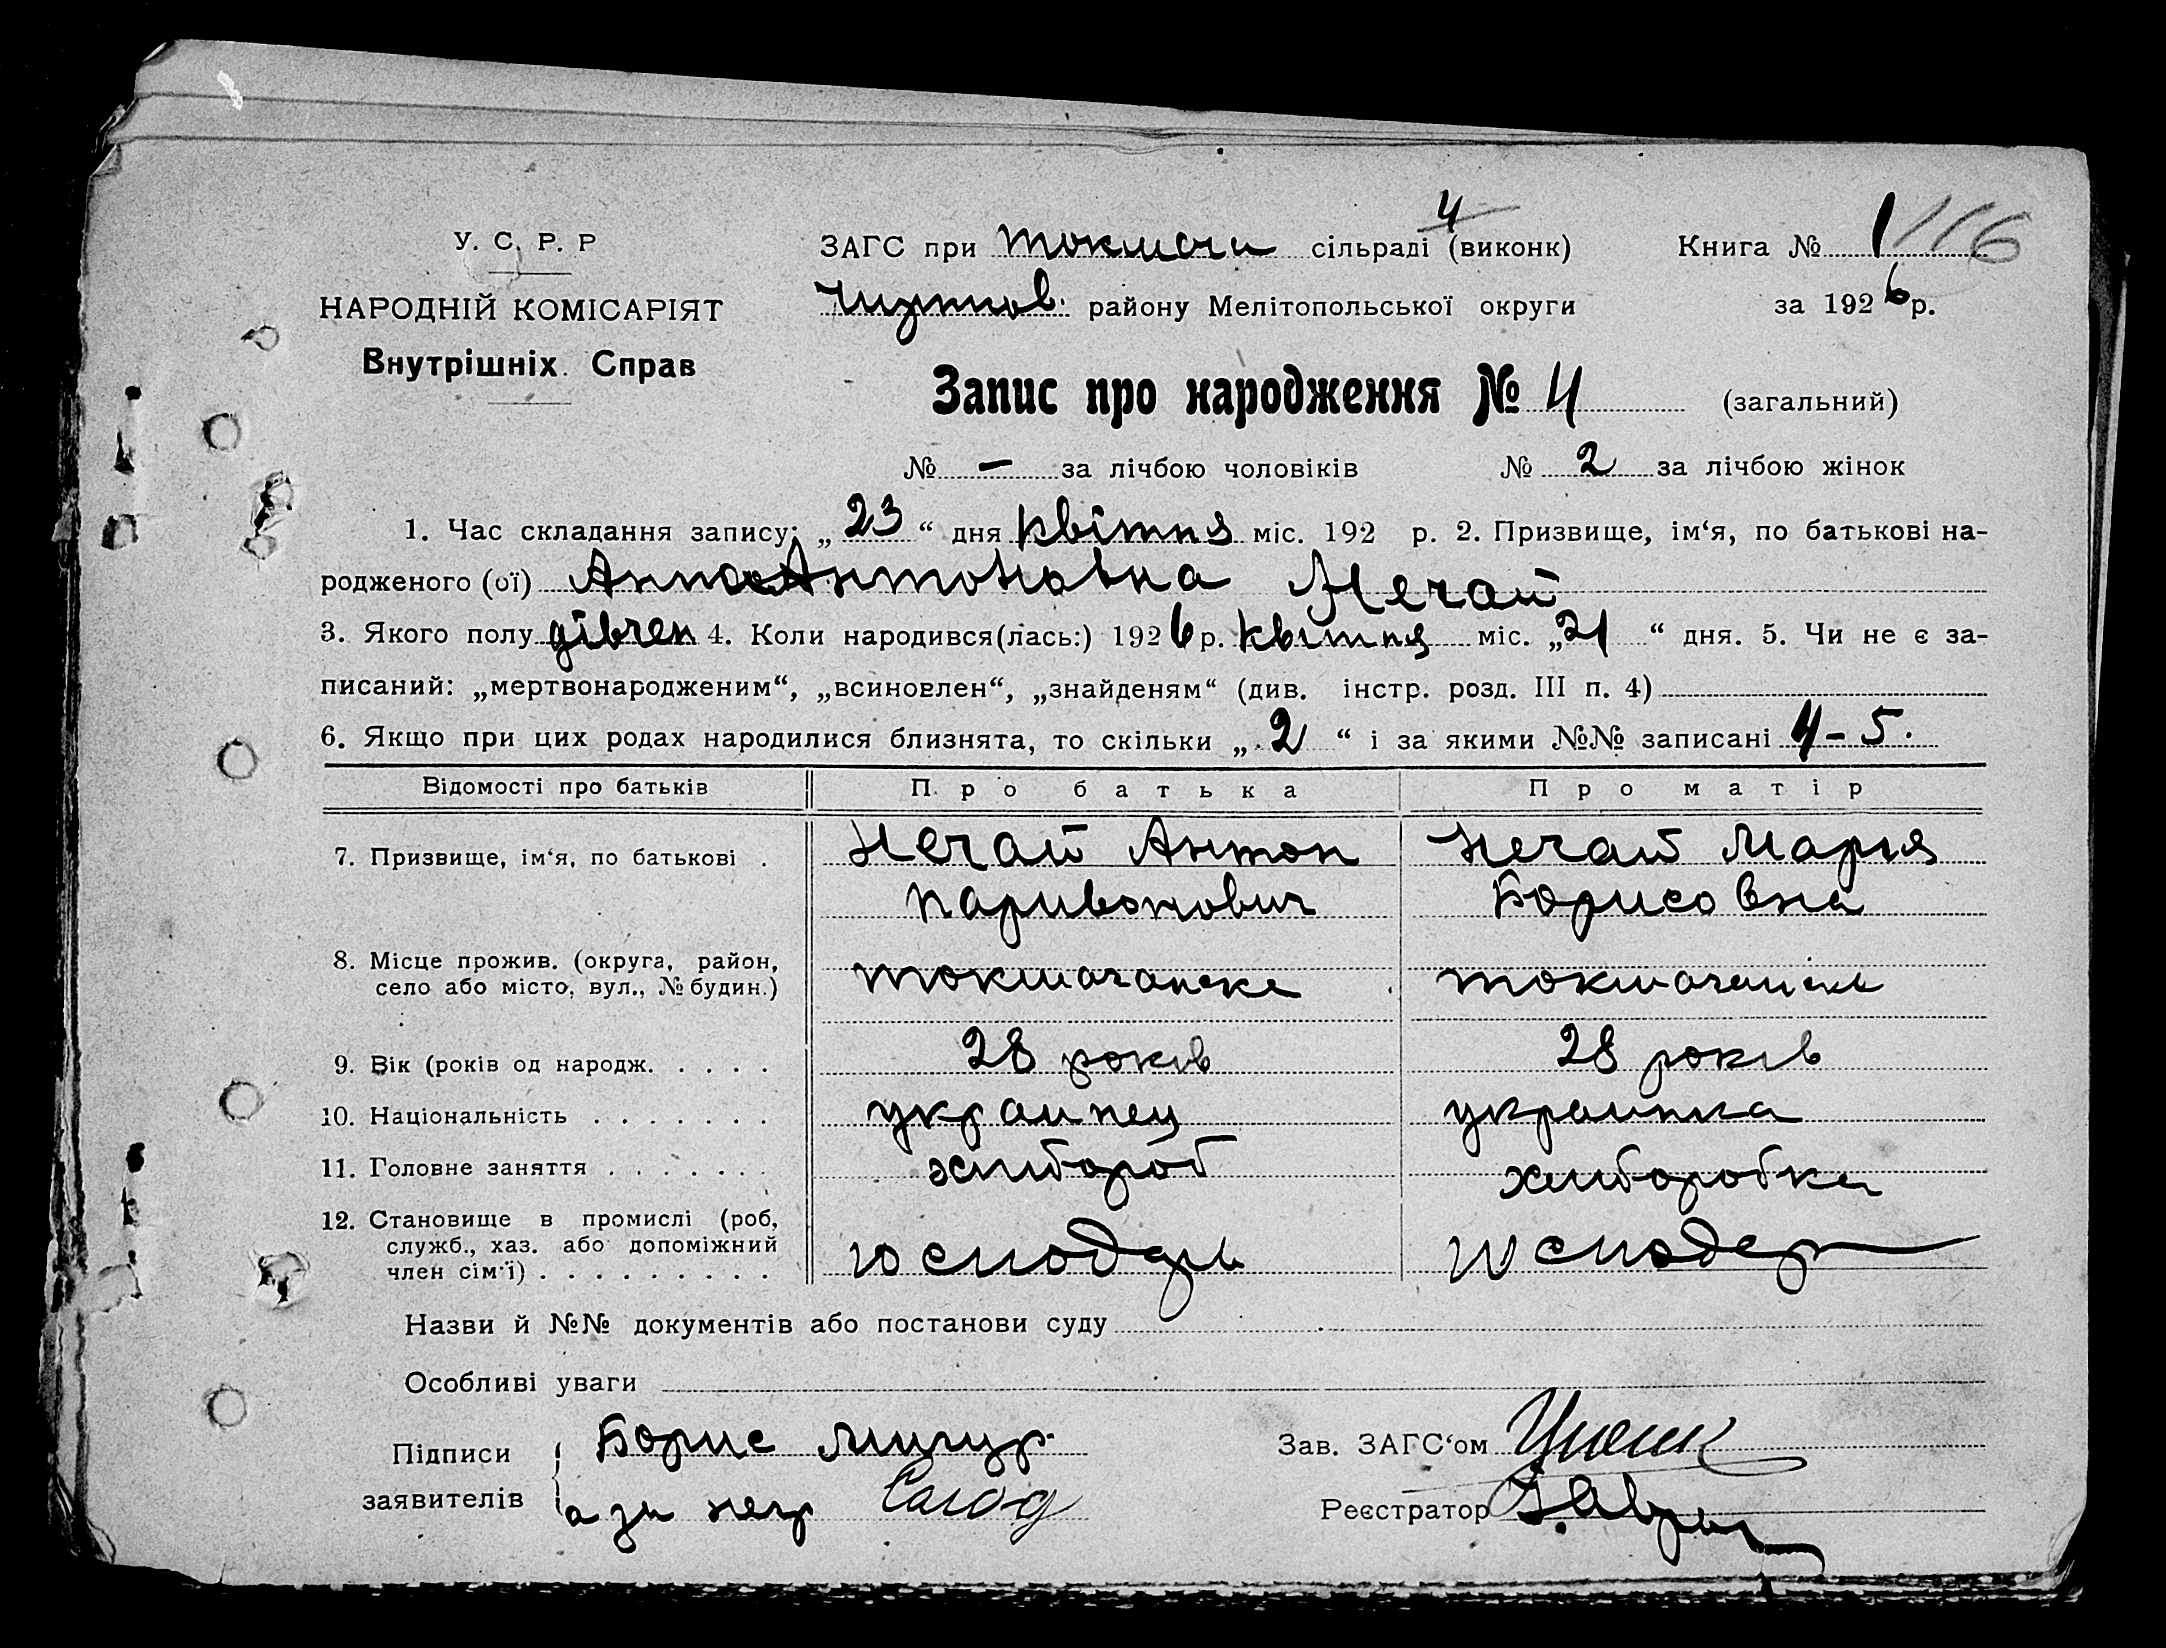 4
У. С. Р. Р ЗАГС при Токмачи сільраді (виконк) Книга № 1 116
НАРОДНІЙ КОМІСАРІЯТ району Мелітопольської округи за 1926 р.
Внутрішніх Справ
Запис про народження № 4 (загальний)
№ – за лічбою чоловіків № 2 за лічбою жінок
1. Час складання запису: „23“ дня квітня міс. 192 р. 2. Призвище, ім‘я, по батькові на-
родженого (ої) Анна Антоновна Нечай
3. Якого полу дівчен 4. Коли народився(лась:) 1926 р. квітня міс. „21“ дня. 5. Чи не є за-
писаний: „мертвонародженим“, „всиновлен“, „знайденям“ (див. інстр. розд. III п. 4)
6. Якщо при цих родах народилися близнята, то скільки „2“ і за якими №№ записані 4–5.
Відомості про батьків Про батька Про матір
7. Призвище, ім‘я, по батькові . Нечай Антон Нечай Мария
Паривонович Борисовна
8. Місце прожив. (округа, район,
село або місто, вул., № будин.)
9. Вік (років од народж. . . . . 28 років 28 років
10. Національність . . . . . . . украинец украинка
11. Головне заняття . . . . . . . хлибороб хлиборобка
12. Становище в промислі (роб,
служб., хаз. або допоміжний
член сім‘ї) . . . . . . . . .
Назви й №№ документів або постанови суду
Особливі уваги
Підписи Борис Зав. ЗАГС‘ом
заявителів а за негр Реєстратор